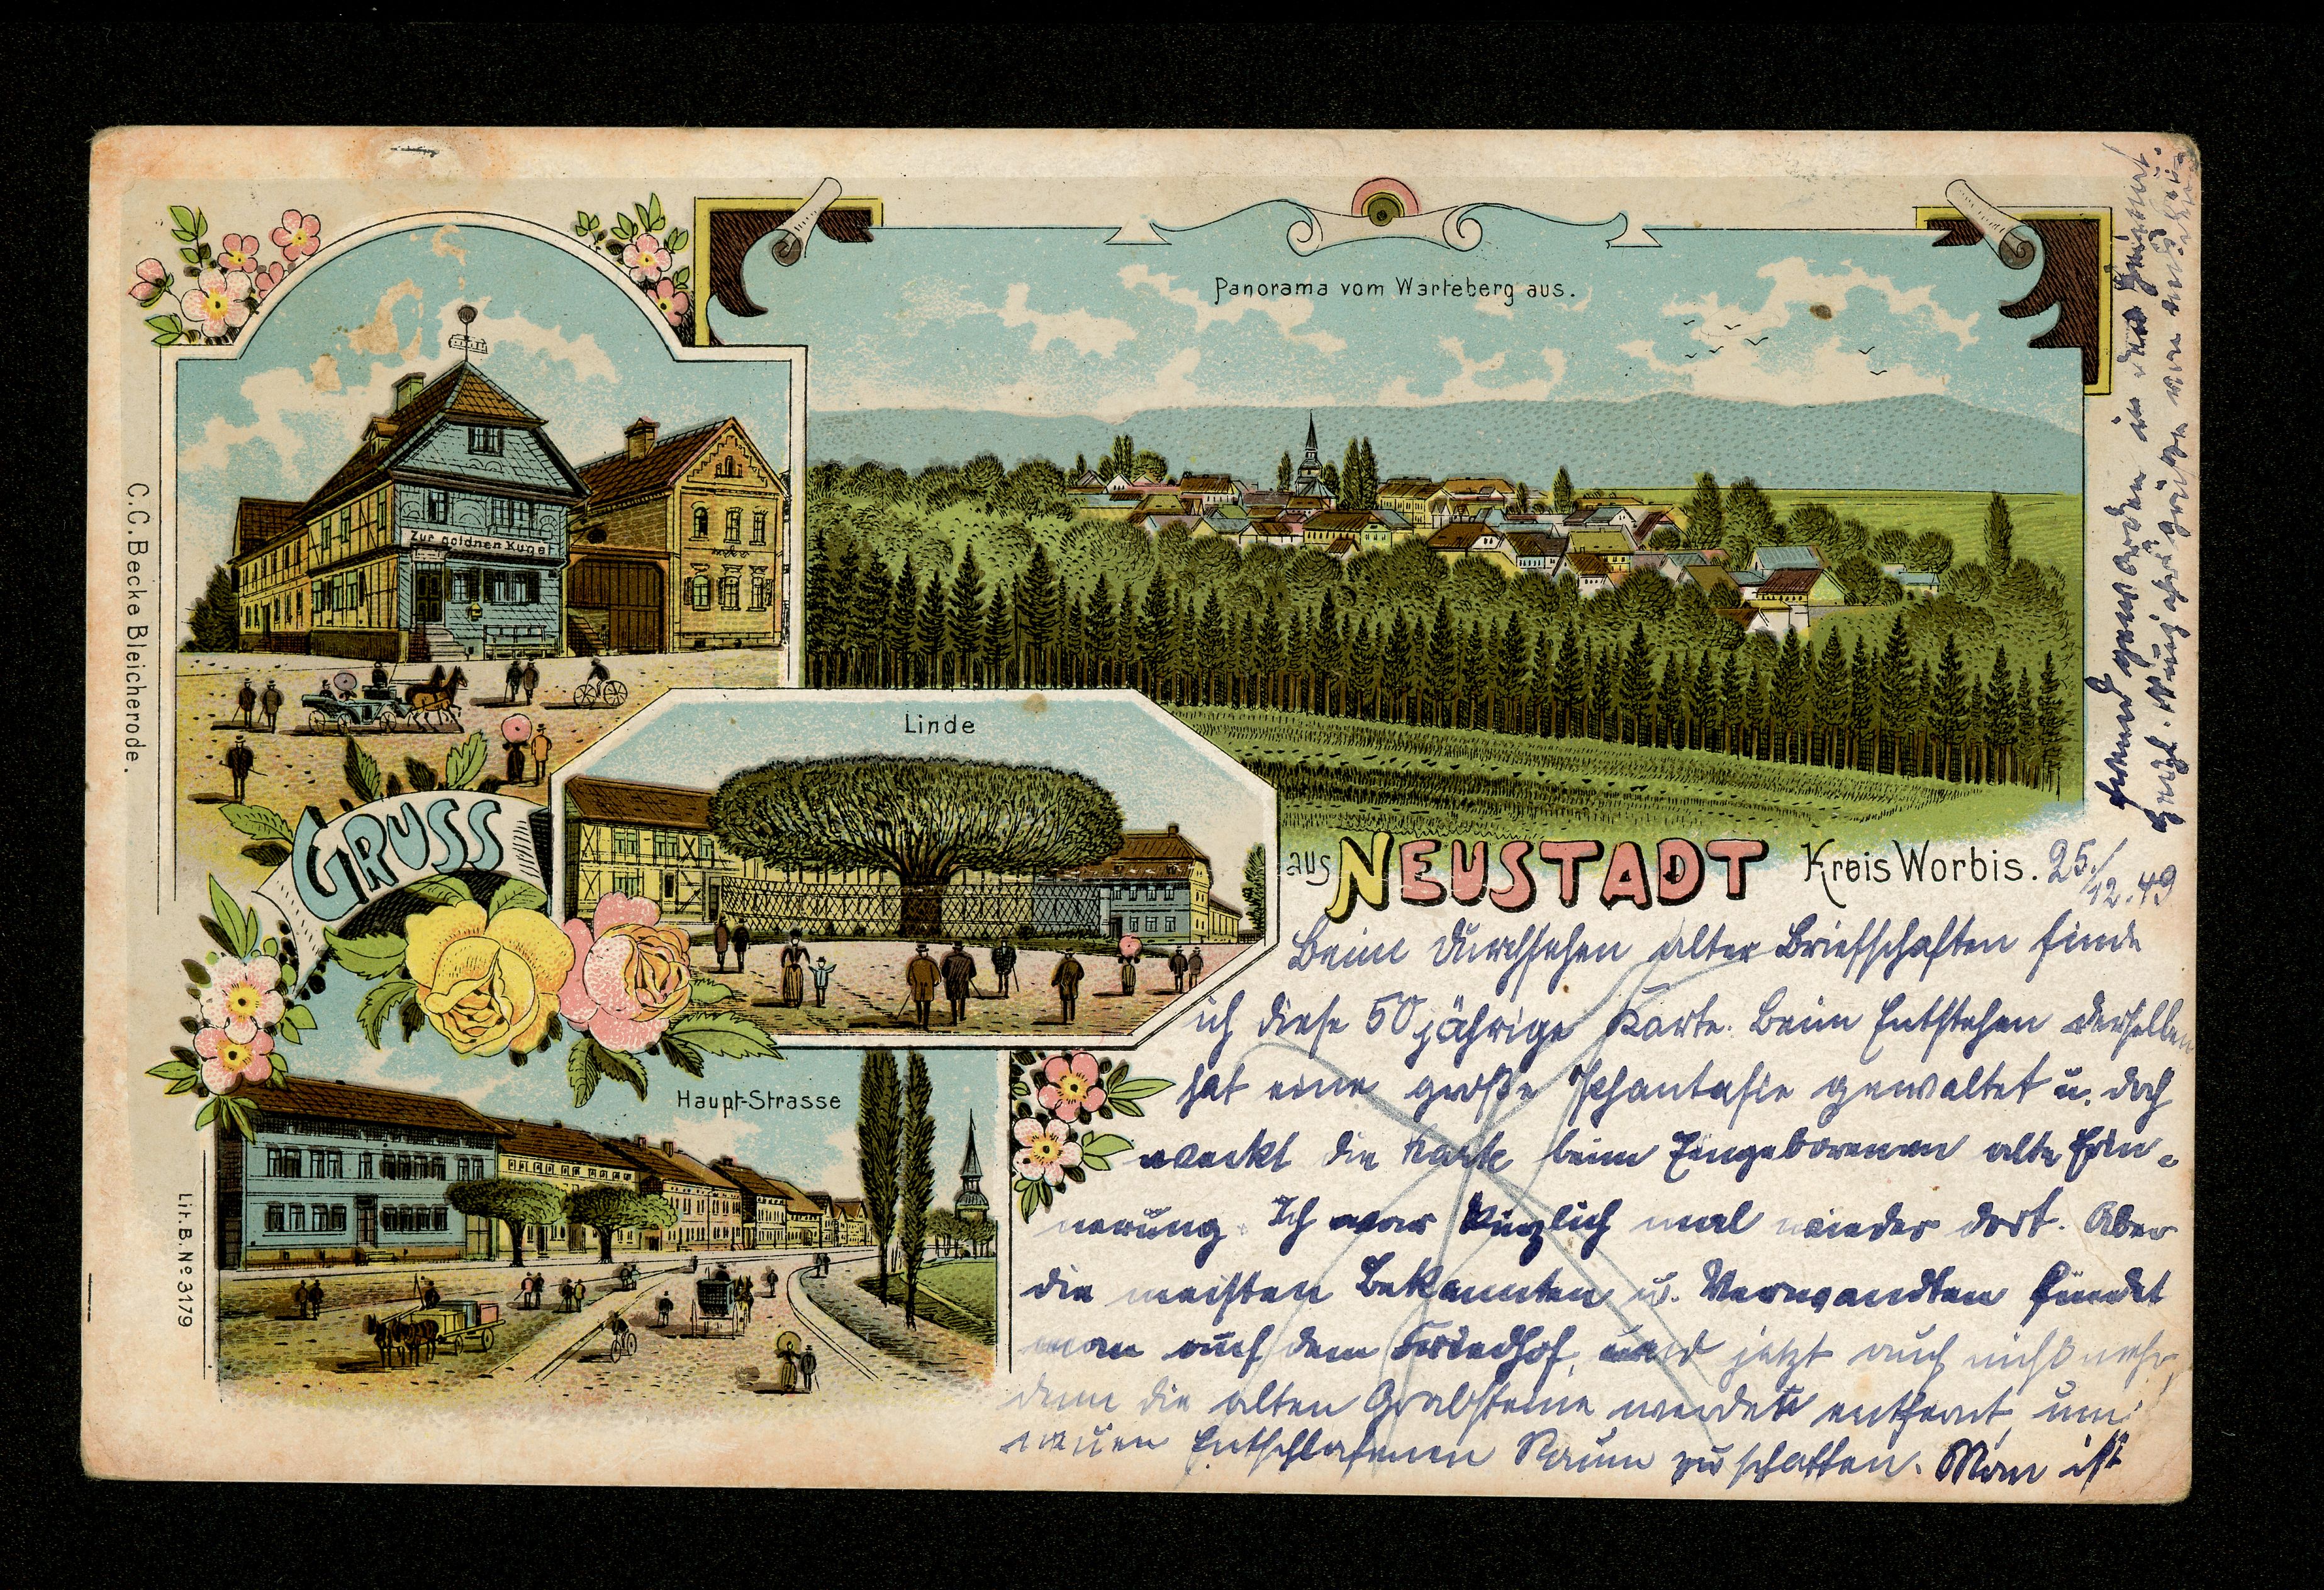 Panorama vom Warteberg aus.
Zur goldnen Kugel
C.C. Becke Bleicherode.
Linde
GRUSS
aus NEUSTADT Kreis Worbis.
Haupt-Strasse
Lit. B. No 3179
25./12.49
Beim Durchsehen alter Briefschaften finde
ich diese 50 jährige Karte. Beim Entstehen derselben
hat eine große Phantasie gewaltet u. doch
weckt die Karte beim Eingeborenen alte Erin-
nerung. Ich war kürzlich mal wieder dort. Aber
die meisten Bekannten u. Verwandten findet
man auf dem Friedhof, und jetzt auch nicht mehr,
denn die alten Grabsteine werden entfernt, um
neuen Entschlafenen Raum zu schaffen. Man ist
fremd geworden in der Heimat.
Herzl. Neujahrsgrüße von